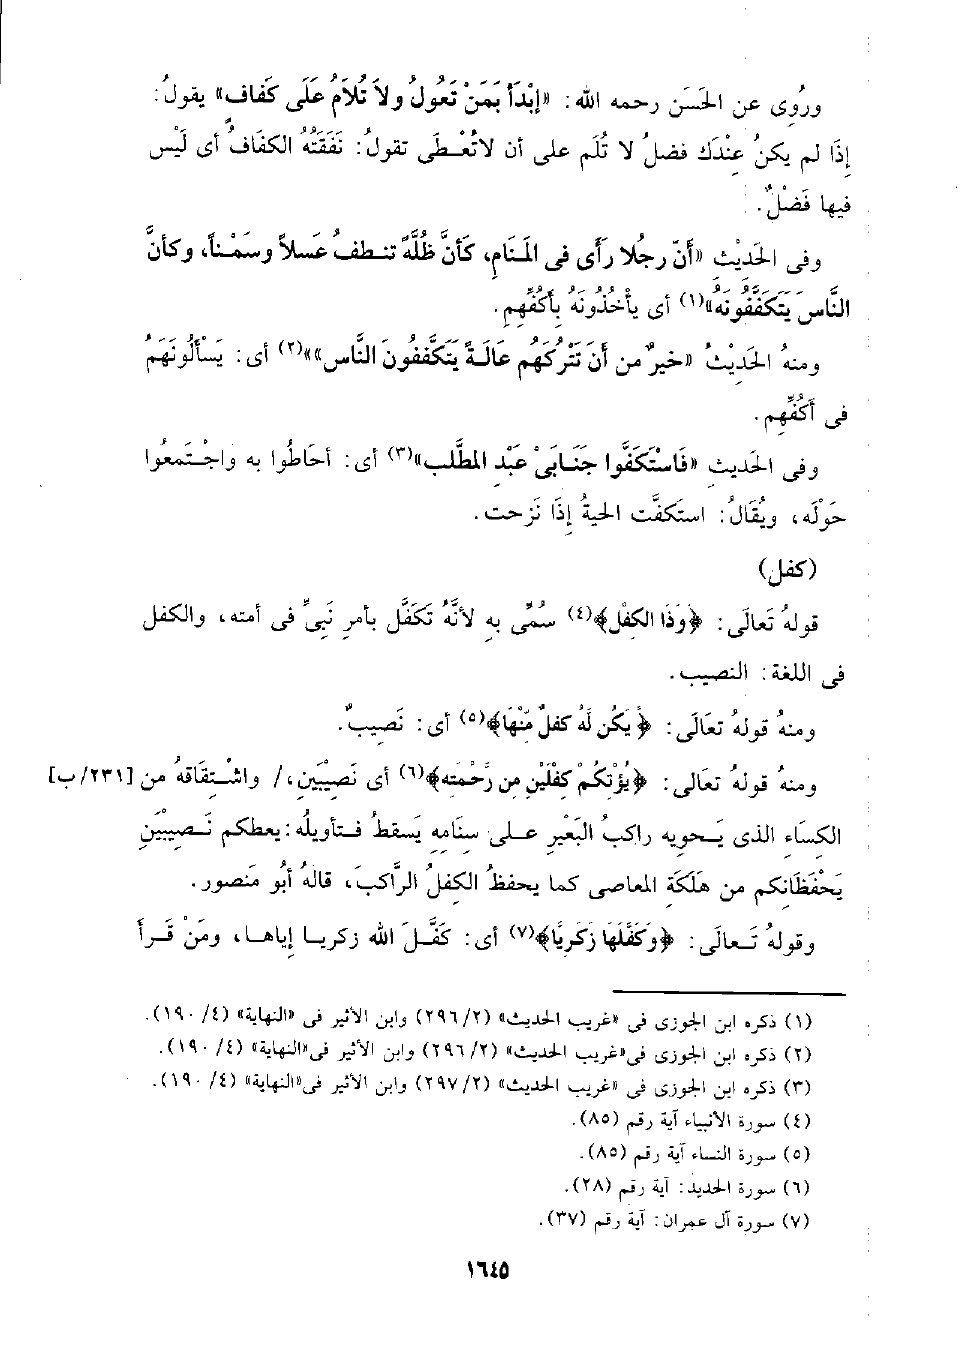 ورُوى عن الحَسَن رحمه الله: «إِبْدَأ بمَنْ تَعُولُ ولاَ تُلاَمُ عَلَى كَفَاف» يقولُ:
إِذَا لم يكنُ عِنْدَك فضلُ لا تُلَم على أن لاتُعْـطَى تقولُ: نَفَقَتُهُ الكَفافُ أى لَيْس
فيها فَضْلٌ.
وفى الحَدِيْث «أنّ رجُلا رَأى فى المَنَام، كَأنَّ ظُلَّةً تنـطفُ عَسَلاً وسَمْنـاً، وكأنَّ
النَّاسَ يَتَكَفَّفُونَهُ»(١) أى يأخُذُونَهُ بأكُفِّهِم.
ومنهُ الحَدِيْثُ «خيرٌ من أنَ تَتْرُكَهُم عَالَـةً يَتَكَفَّفُونَ النَّاس»»(٢) أى: يَسْألُونَهُم
فى أكُفِّهِم.
وفى الحَديث «فَاسْتَكَفُّوا جَنَـابَىْ عَبْدِ المطَّلب»(٣) أى: أحَاطُوا به واجْـتَمعُوا
حَوْلَه، ويُقَالُ: استكفَّت الحيةُ إِذَا نَزحت.
(كفل)
قولهُ تَعالَى: ﴿وَذَا الكِفْل﴾(٤) سُمِّى بِهِ لأنَّهُ تكَفَّل بأمرِ نَبِىٍّ فى أمته، والكفل
فى اللغة: النصيب.
ومنهُ قولهُ تعَالَى: ﴿يَكُن لَهُ كفلٌ مِّنْهَا﴾(٥) أى: نَصِيبٌ.
ومنهُ قولهُ تعَالى: ﴿يُؤْتكُمْ كِفْلَيْنِ مِن رَّحْمَته﴾(٦) أى نَصِيْبَين،/ واشْـتِقَاقهُ من [٢٣١/ب]
الكسَاء الذى يَـحويه راكبُ البَعْير عـلى سنَامهِ يَسقطُ فـتأويلُه:يعطكم نَـصِيبَيْن
يَحْفَظَانكم من هَلَكَة المعاصى كما يحفظُ الكفلُ الرَّاكبَ، قالهُ أبُو مَنصور.
وقولهُ تَـعالَى: ﴿وَكَفَّلَهَا زَكرِيَّا﴾(٧) أى: كَفَّـلَ الله زكريـا إياهـا، ومَنْ قَـرأ
(١) ذكره ابن الجوزى فى «غريب الحديث» (٢٩٦/٢) وابن الأثير فى «النهاية» (٤/ ١٩٠).
(٢) ذكره ابن الجوزى فى«غريب الحديث» (٢٩٦/٢) وابن الأثير فى«النهاية» (٤/ ١٩٠).
(٣) ذكره ابن الجوزى فى «غريب الحديث» (٢٩٧/٢) وابن الأثير فى«النهاية» (٤/ ١٩٠).
(٤) سورة الأنبياء آية رقم (٨٥).
(٥) سورة النساء آية رقم (٨٥).
(٦) سورة الحديد: آية رقم (٢٨).
(٧) سورة آل عمران: آية رقم (٣٧).
١٦٤٥